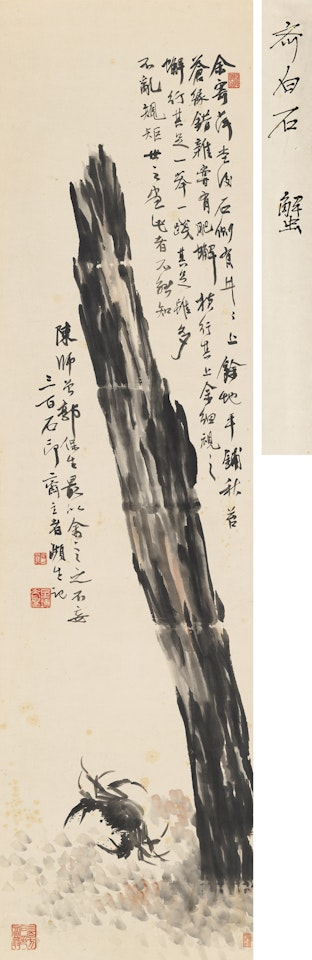 齐白石 蟹
余寄萍堂後石側有井〻上餘地平鋪秋苔
蒼綠錯雜嘗有肥蠏橫行其上余細視之
蠏行其足一舉一踐其足雖多
不亂規矩世之畫此者不能知
陳師曾郭葆生最以余言之不妄
三百石印齋主者瀕生記